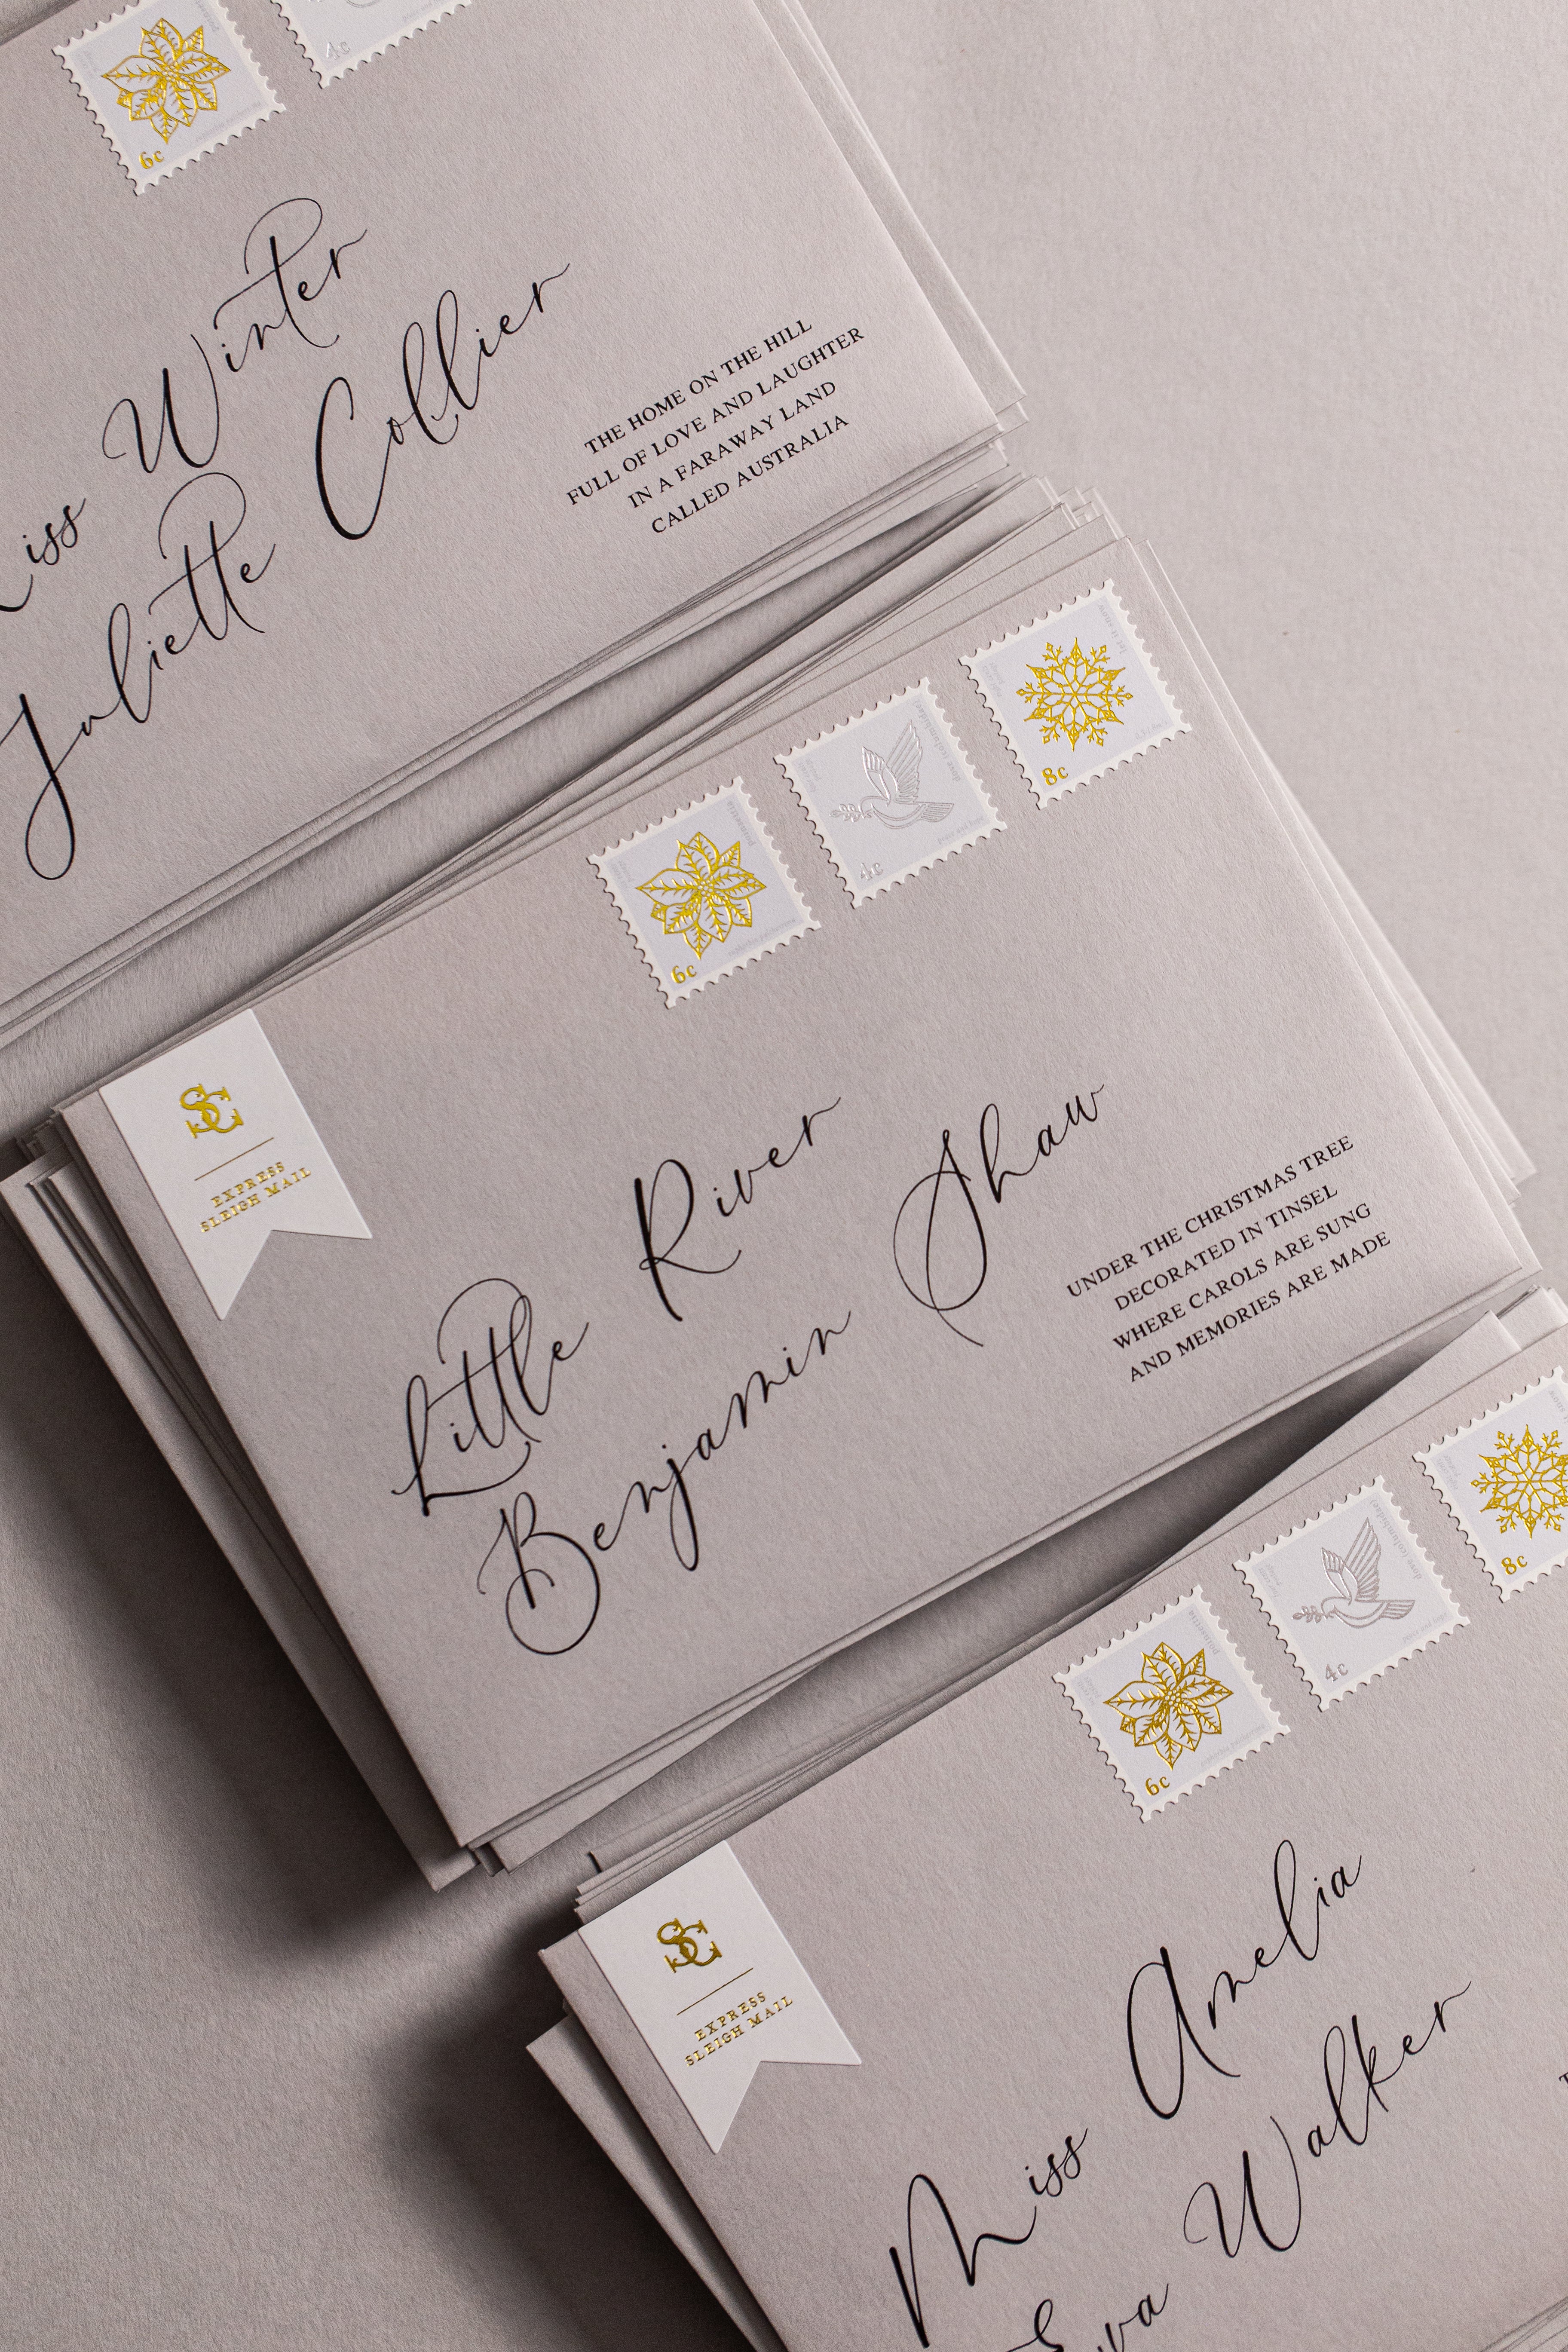 6c
4c
Miss Winter
Juliette Collier
THE HOME ON THE HILL
FULL OF LOVE AND LAUGHTER
IN A FARAWAY LAND
CALLED AUSTRALIA
6c
poinsettia
4c
dove columbidae
8c
let it snow
SC
EXPRESS
SLEIGH MAIL
Little River
Benjamin Shaw
UNDER THE CHRISTMAS TREE
DECORATED IN TINSEL
WHERE CAROLS ARE SUNG
AND MEMORIES ARE MADE
6c
poinsettia
4c
dove columbidae
8c
SC
EXPRESS
SLEIGH MAIL
Miss Amelia
Eva Walker